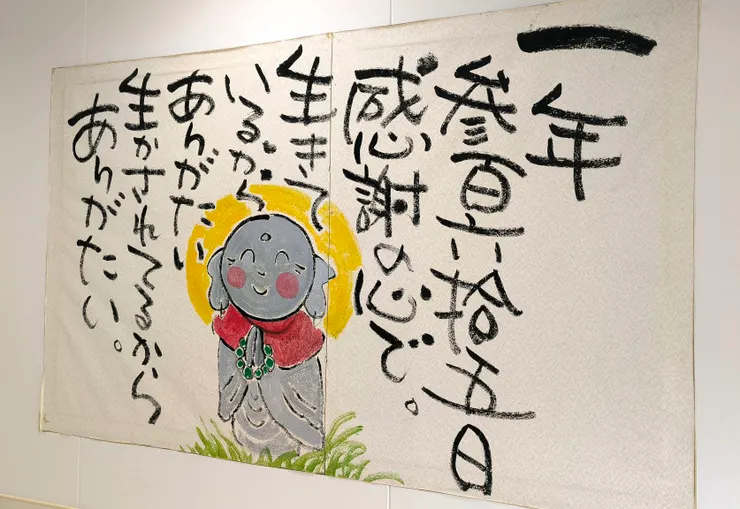 一年
参百六拾五日
感謝の心で。
生きて
いるから
ありがたい
生かされてるから
ありがたい。